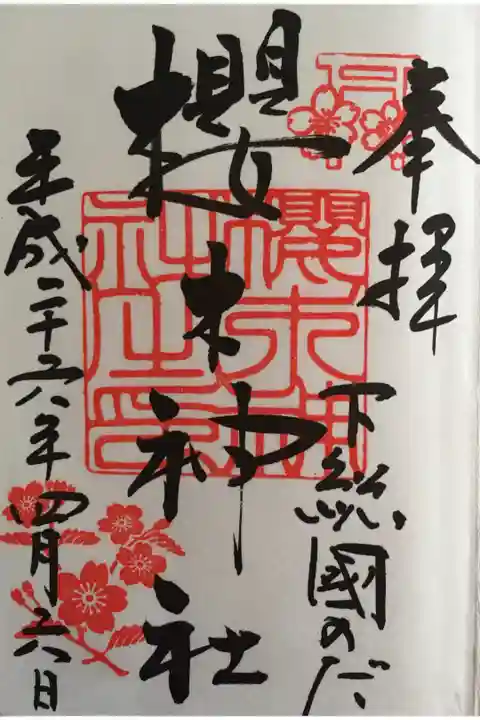 奉拝
下総國のだ
櫻木神社
櫻木神社印
平成二十六年四月六日